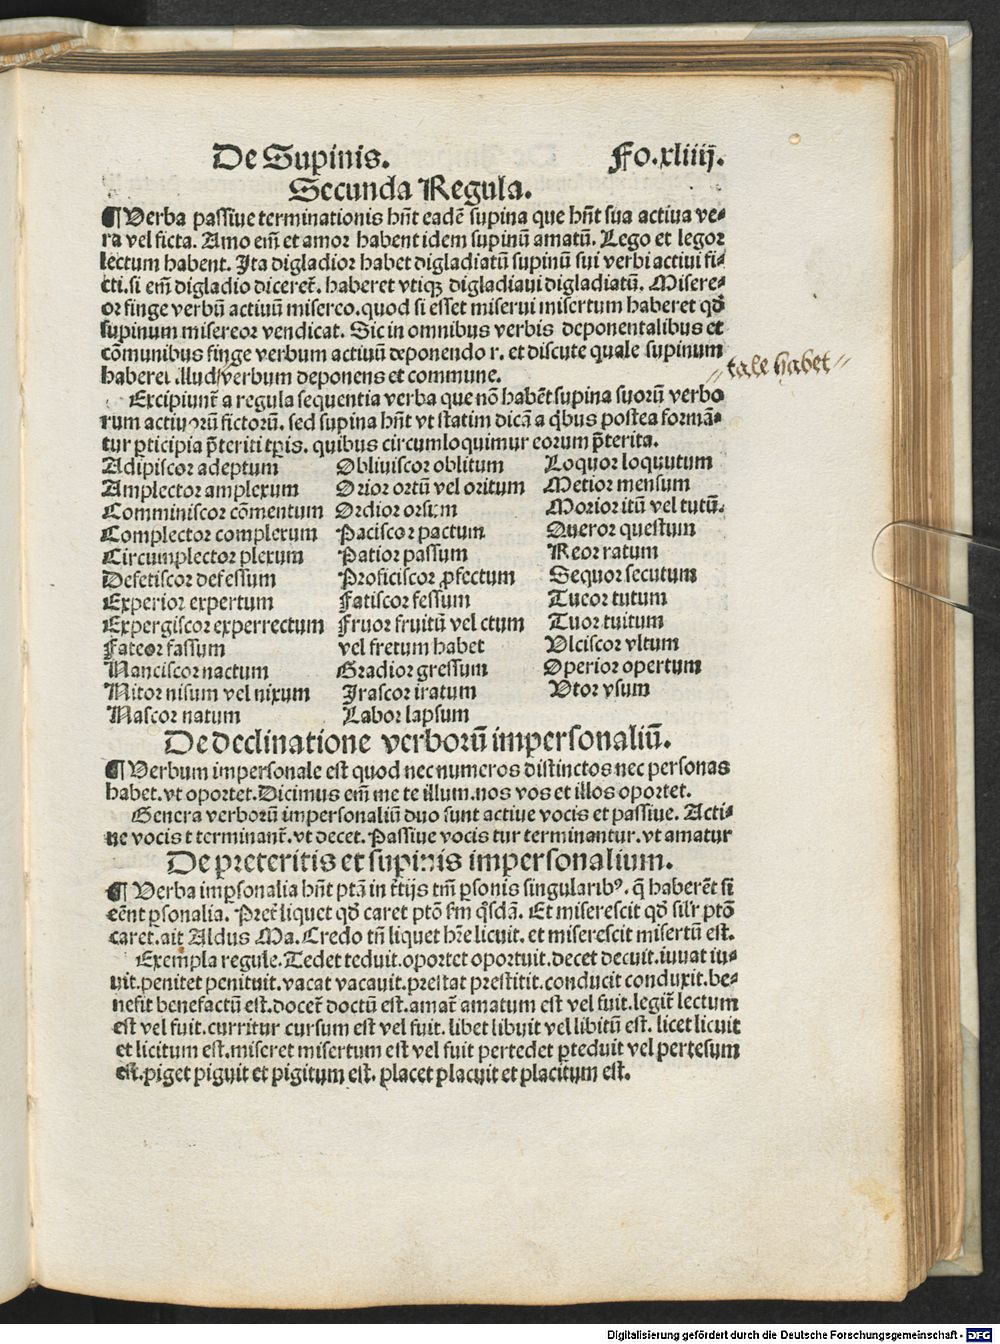 De Supinis. Fo. xliiij.
Secunda Regula.
¶ Verba passiue terminationis hñt eadē supina que hñt sua actiua ve⸗
ra vel ficta. Amo em̄ et amor habent idem supinū amatū. Lego et legor
lectum habent. Ita digladior habet digladiatū supinū sui verbi actiui fi⸗
cti. si em̄ digladio diceret̄. haberet vtiqꝫ digladiaui digladiatū. Misere⸗
or finge verbū actiuū misereo. quod si esset miserui misertum haberet qđ
supinum misereor vendicat. Sic in omnibus verbis deponentalibus et
cōmunibus finge verbum actiuū deponendo r. et discute quale supinum
haberet illud / verbum deponens et commune. // tale habet //
Excipiunt̄ a regula sequentia verba que nō habēt supina suorū verbo
rum actiuorū fictorū. sed supina hñt vt statim dicā a qͥbus postea formā⸗
tur ꝑticipia p̄teriti tꝑis. quibus circumloquimur eorum p̄terita.
Adipiscor adeptum
Amplector amplexum
Comminiscor cōmentum
Complector complexum
Circumplector plexum
Defetiscor defessum
Experior expertum
Expergiscor experrectum
Fateor fassum
Nanciscor nactum
Nitor nisum vel nixum
Nascor natum
Obliuiscor oblitum
Orior ortū vel oritum
Ordior orsum
Paciscor pactum
Patior passum
Proficiscor ꝓfectum
Fatiscor fessum
Fruor fruitū vel ctum
vel fretum habet
Gradior gressum
Irascor iratum
Labor lapsum
Loquor loquutum
Metior mensum
Morior itū vel tutū.
Queror questum
Reor ratum
Sequor secutum
Tueor tutum
Tuor tuitum
Vlciscor vltum
Operior opertum
Vtor vsum
De declinatione verborū impersonaliū.
¶ Verbum impersonale est quod nec numeros distinctos nec personas
habet. vt oportet. Dicimus em̄ me te illum. nos vos et illos oportet.
Genera verborū impersonaliū duo sunt actiue vocis et passiue. Acti⸗
ue vocis t terminant̄. vt decet. Passiue vocis tur terminantur. vt amatur
De preteritis et supinis impersonalium.
¶ Verba imꝑsonalia hñt ptā in t̄tijs tm̄ ꝑsonis singularibꝰ. q̄ haberēt si
eēnt ꝑsonalia. Pret̄ liquet qđ caret ptō fm qͦsdā. Et miserescit qđ sil'r ptō
caret. ait Aldus Ma. Credo tñ liquet hr̄e licuit. et miserescit misertū est.
Exempla regule. Tedet teduit. oportet oportuit. decet decuit. iuuat iu⸗
uit. penitet penituit. vacat vacauit. prestat prestitit. conducit conduxit. be⸗
nefit benefactū est. docet̄ doctū est. amat̄ amatum est vel fuit. legit̄ lectum
est vel fuit. curritur cursum est vel fuit. libet libuit vel libitū est. licet licuit
et licitum est. miseret misertum est vel fuit pertedet ꝑteduit vel pertesum
est. piget piguit et pigitum est. placet placuit et placitum est.
Digitalisierung gefördert durch die Deutsche Forschungsgemeinschaft - DFG